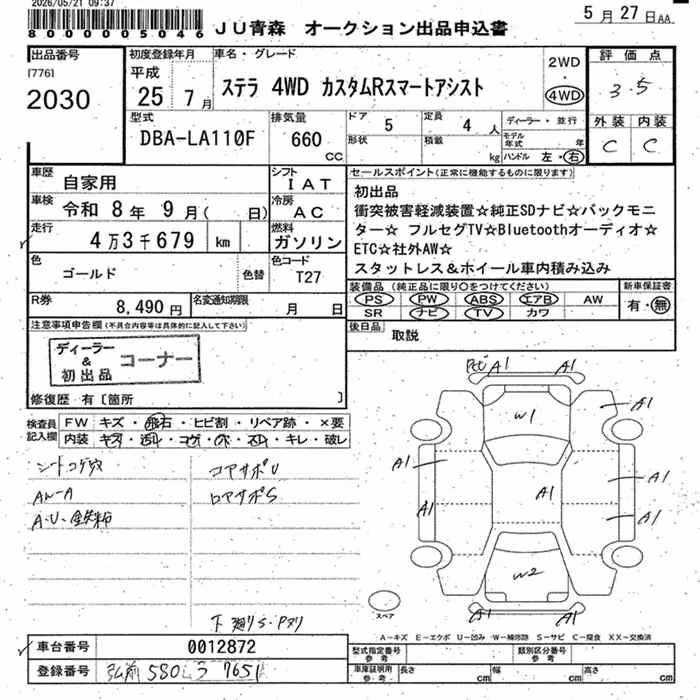 2026/05/21 09:37
8000005046
JU青森 オークション出品申込書
5月27日AA
出品番号
[776]
2030
初度登録年月
平成
25 7月
車名・グレード
ステラ 4WD カスタムRスマートアシスト
2WD
・
4WD
評価点
3.5
外装 内装
C C
型式
DBA-LA110F
排気量
660
CC
ドア
5
定員
4 人
形状
積載
kg
ディーラー・並行
モデル年式 年
ハンドル 左・右
車歴
自家用
シフト
IAT
車検
令和 8年 9月( 日)
冷房
AC
走行
4万3千679 km
燃料
ガソリン
色
ゴールド
色替
色コード
T27
R券
8,490円
名変通知期限
月 日
セールスポイント(正常に機能するものに限ります)
初出品
衝突被害軽減装置☆純正SDナビ☆バックモニ
ター☆ フルセグTV☆Bluetoothオーディオ☆
ETC☆社外AW☆
スタットレス&ホイール車内積み込み
装備品(純正品に限り○をつけてください)
PS PW ABS エアB AW
SR ナビ TV カワ
新車保証書
有・無
後日品
取説
注意事項申告欄(不具合内容等は具体的に記入して下さい)
ディーラー
&
初出品
コーナー
修復歴 有〔箇所 〕
検査員
記入欄
FW キズ・飛石・ヒビ割・リペア跡・×要
内装 キズ・汚レ・コゲ・穴・スレ・キレ・破レ
シートコゲ穴
AW-A
A・U・鉄粉
コアサポU
ロアサポS
下廻りS・Pヌリ
A1
A1
W1
A1
A1
A1
A1
A1
A1
A1
W2
A1
A1
スペア
A-キズ E-エクボ U-凹み W-補修跡 S-サビ C-腐食 XX-交換済
車台番号
0012872
登録番号
弘前 580 う 7651
型式指定番号
参考
類別区分番号
参考
車庫証明用
参考
長さ
cm
幅
cm
高さ
cm